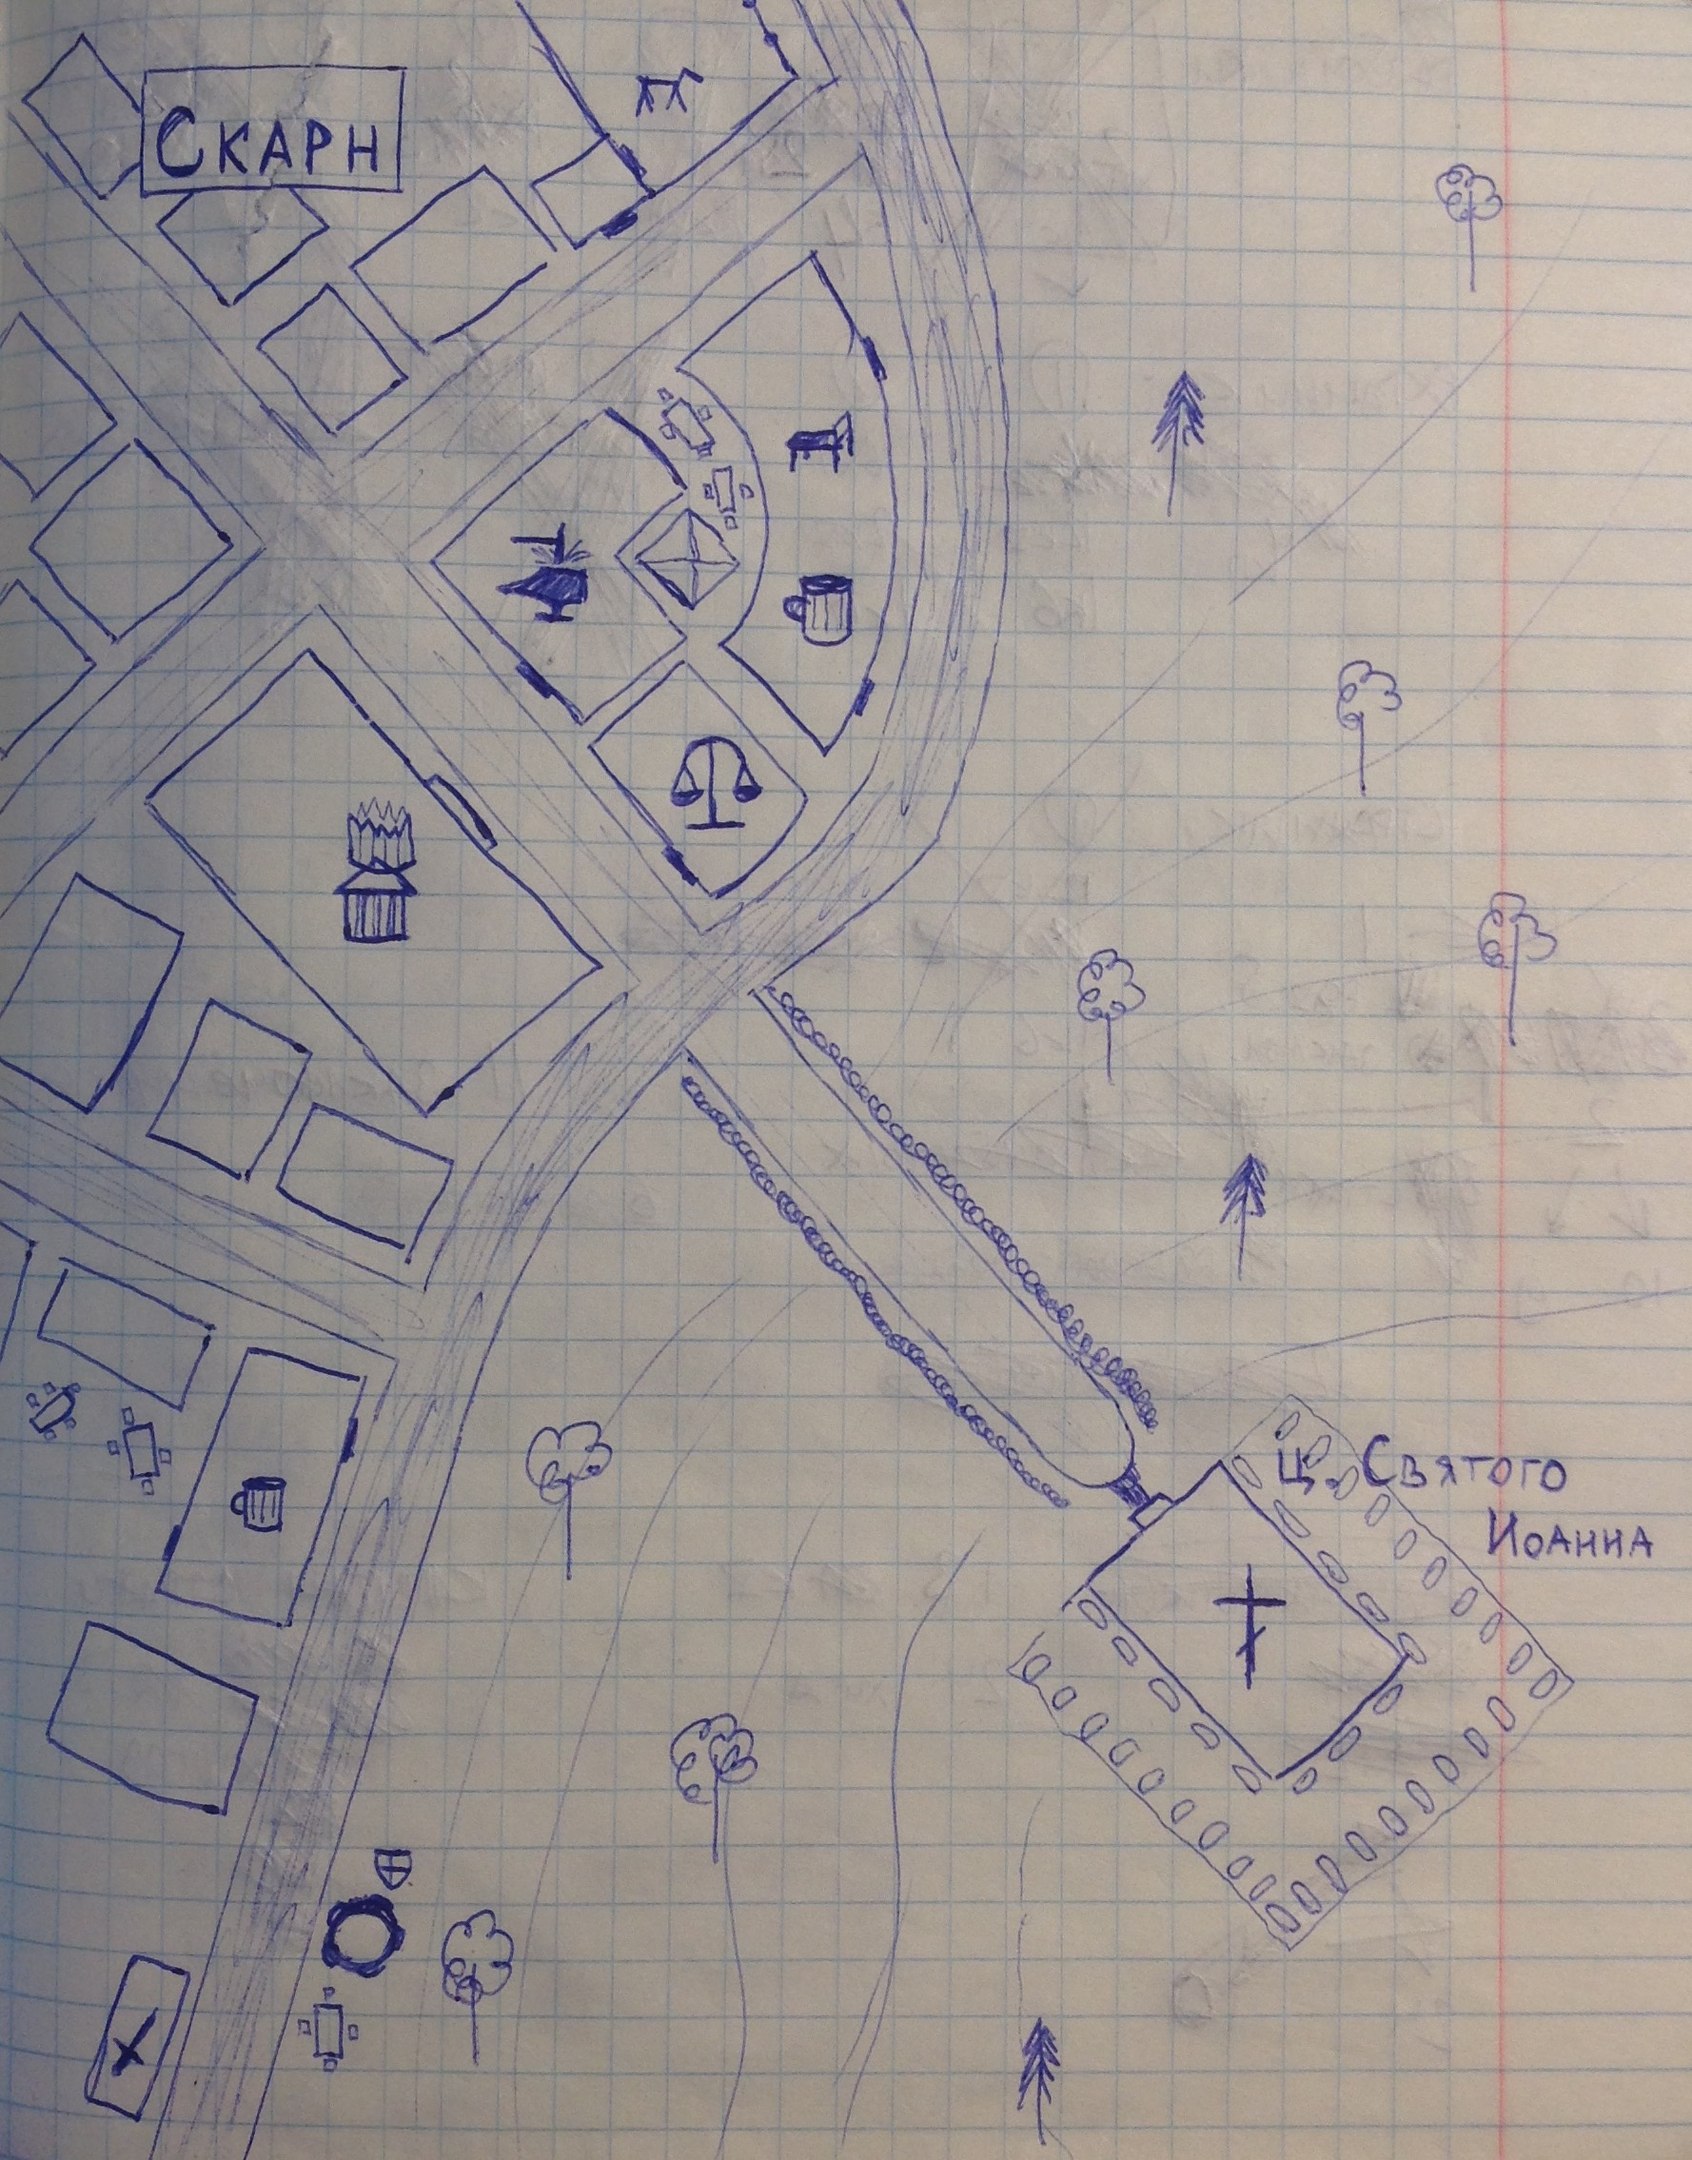 Скарн
Ц. Святого
Иоанна